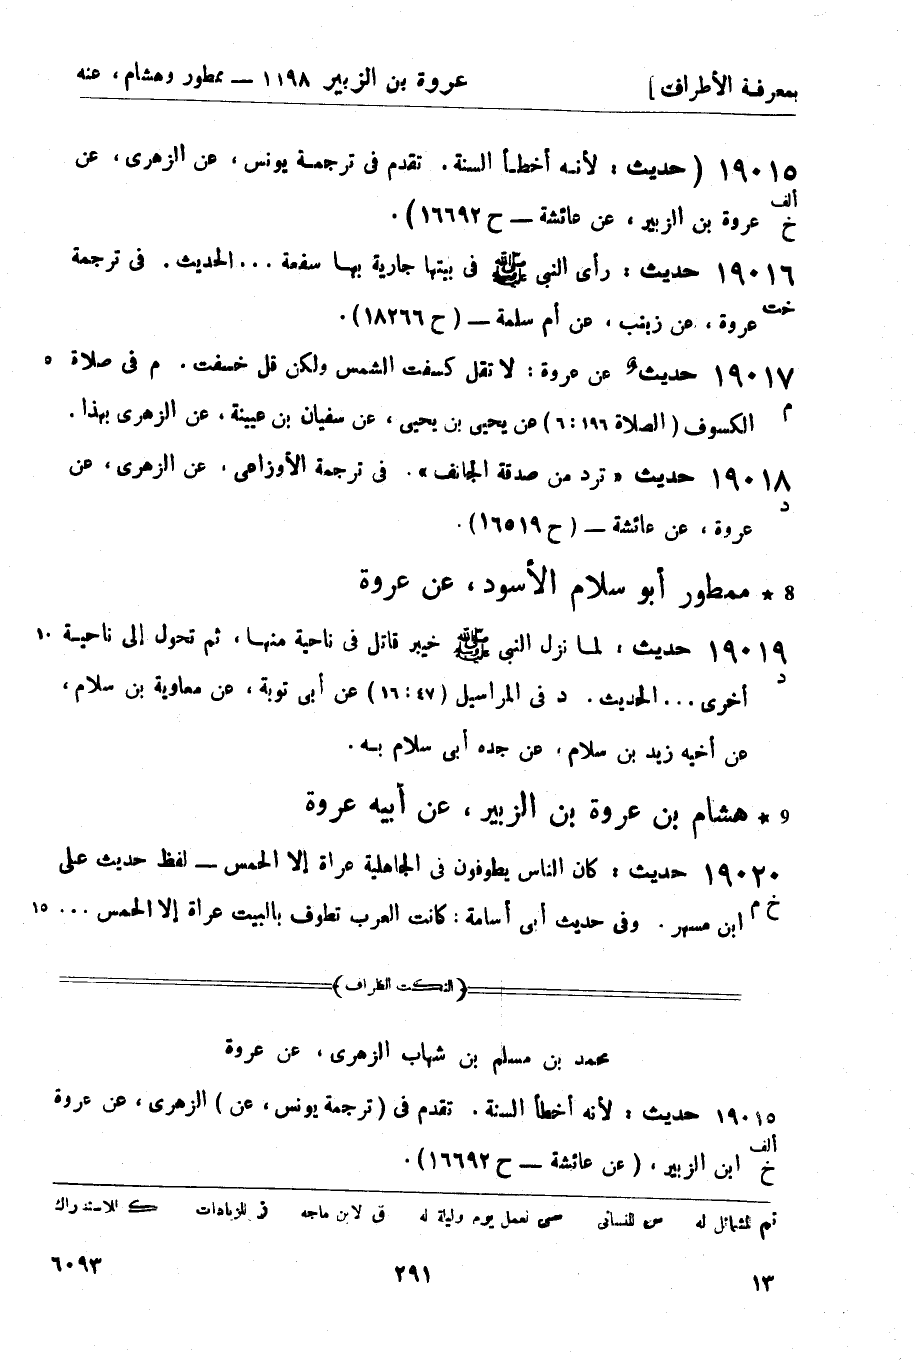 بمعرفة الأطراف ] عروة بن الزبير ١١٩٨ — ممطور وهشام ، عنه
١٩٠١٥ ( حديث : لأنه أخطأ السنة . تقدم فى ترجمة يونس ، عن الزهرى ، عن
ألف
خ عروة بن الزبير ، عن عائشة — ح ١٦٦٩٢ ) .
١٩٠١٦ حديث : رأى النبى ﷺ فى بيتها جارية بها سفعة ... الحديث . فى ترجمة
خت عروة ، عن زينب ، عن أم سلمة — ( ح ١٨٢٦٦ ) .
١٩٠١٧ حديث عن عروة : لا تقل كسفت الشمس ولكن قل خسفت . م فى صلاة ٥
م الكسوف ( الصلاة ١٩٦ : ٦ ) عن يحيى بن يحيى ، عن سفيان بن عيينة ، عن الزهرى بهذا .
١٩٠١٨ حديث « ترد من صدقة الجانف » . فى ترجمة الأوزاعى ، عن الزهرى ، عن
د عروة ، عن عائشة — ( ح ١٦٥١٩ ) .
8 * ممطور أبو سلام الأسود ، عن عروة
١٩٠١٩ حديث : لما نزل النبى ﷺ خيبر قاتل فى ناحية منها ، ثم تحول إلى ناحية ١٠
د أخرى ... الحديث . د فى المراسيل ( ٤٧ : ١٦ ) عن أبى توبة ، عن معاوية بن سلام ،
عن أخيه زيد بن سلام ، عن جده أبى سلام به .
9 * هشام بن عروة بن الزبير ، عن أبيه عروة
١٩٠٢٠ حديث : كان الناس يطوفون فى الجاهلية عراة إلا الحمس — لفظ حديث على
خ م ابن مسهر . وفى حديث أبى أسامة : كانت العرب تطوف بالبيت عراة إلا الحمس ... ١٥
( النكت الظراف )
محمد بن مسلم بن شهاب الزهرى ، عن عروة
١٩٠١٥ حديث : لأنه أخطأ السنة . تقدم فى ( ترجمة يونس ، عن ) الزهرى ، عن عروة
ألف
خ ابن الزبير ، ( عن عائشة — ح ١٦٦٩٢ ) .
تم للشمائل له س للنسائى سى لعمل يوم وليلة له ق لابن ماجه ز للزيادات ك للاستدراك
١٣ ٢٩١ ٦٠٩٣